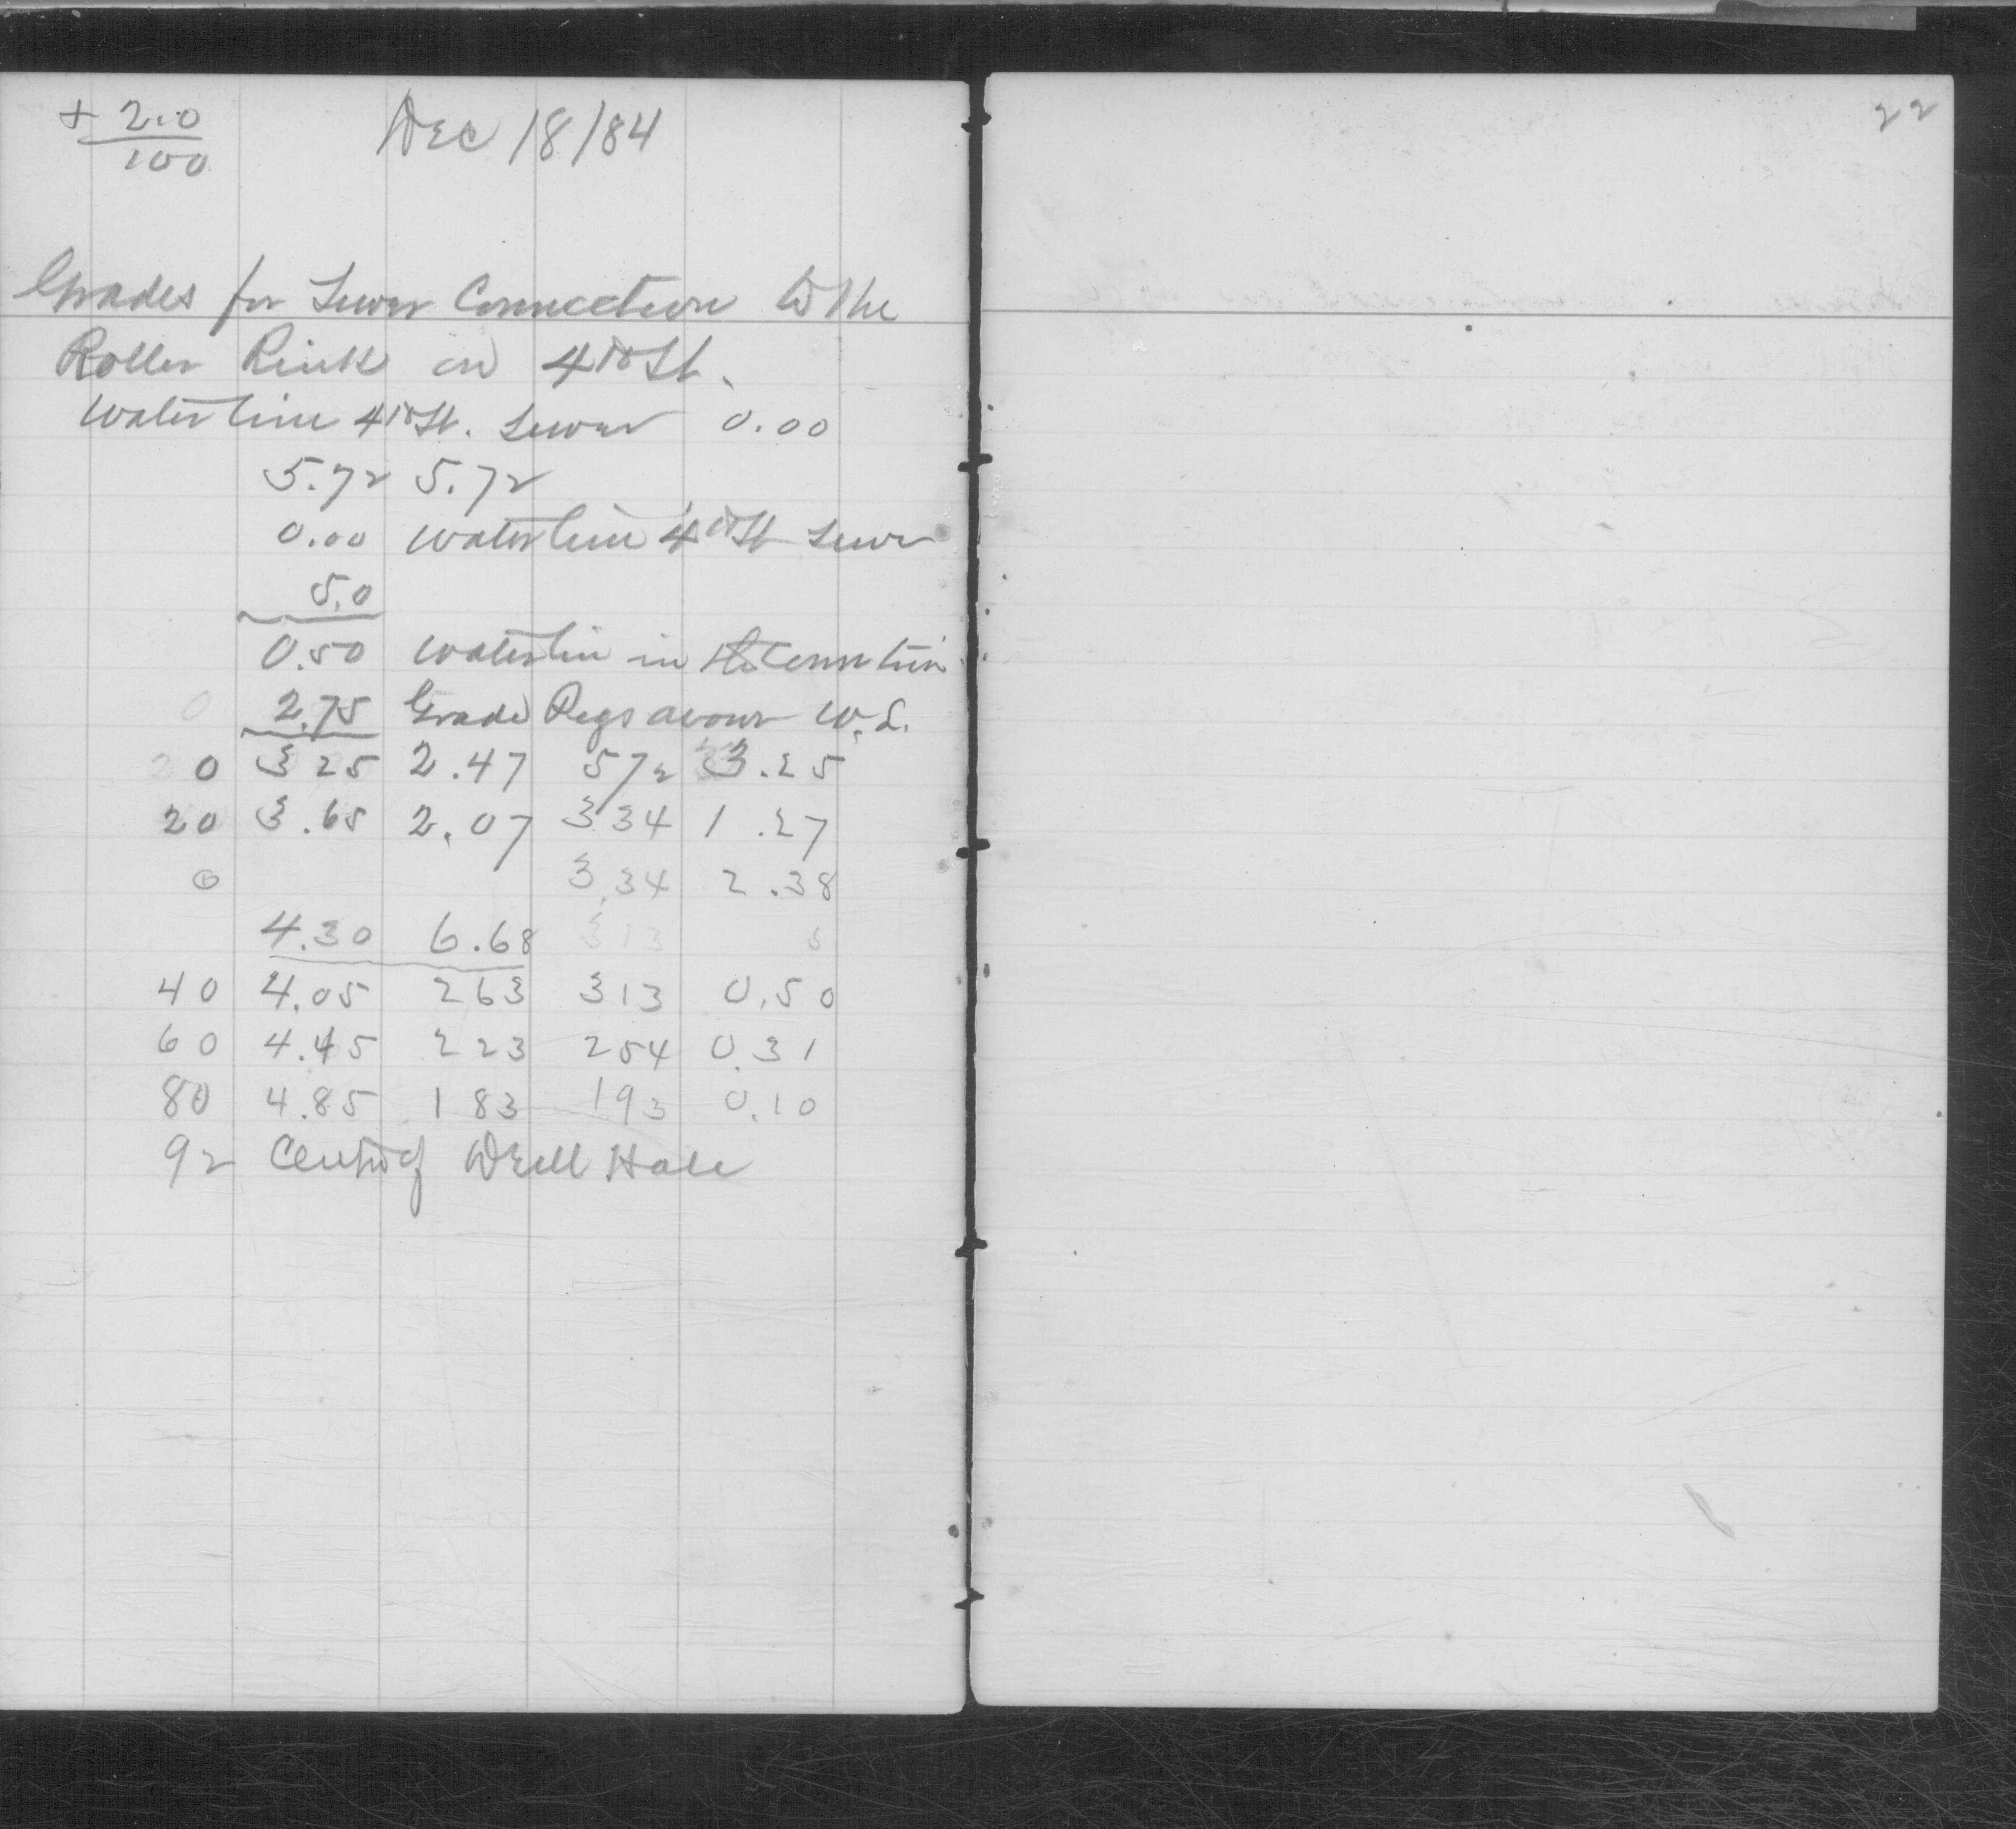 + 2.0
100
Dec 18/84
Grades for Sewer Connection to the
Roller Rink on 4th St.
Waterline 4th St. Sewer 0.00
5.72 5.72
0.00 Waterline 4th St Sewer
5.0
0.50 Waterlin in the Conn tion
0 2.75 Grade Pegs above W.L.
0 3 25 2.47 5 72 3.25
20 3.65 2.07 3 34 1.27
0 3.34 2.38
4.30 6.68 313
40 4.05 263 313 0.50
60 4.45 223 254 0.31
80 4.85 183 193 0.10
92 Center of Well Hole
22